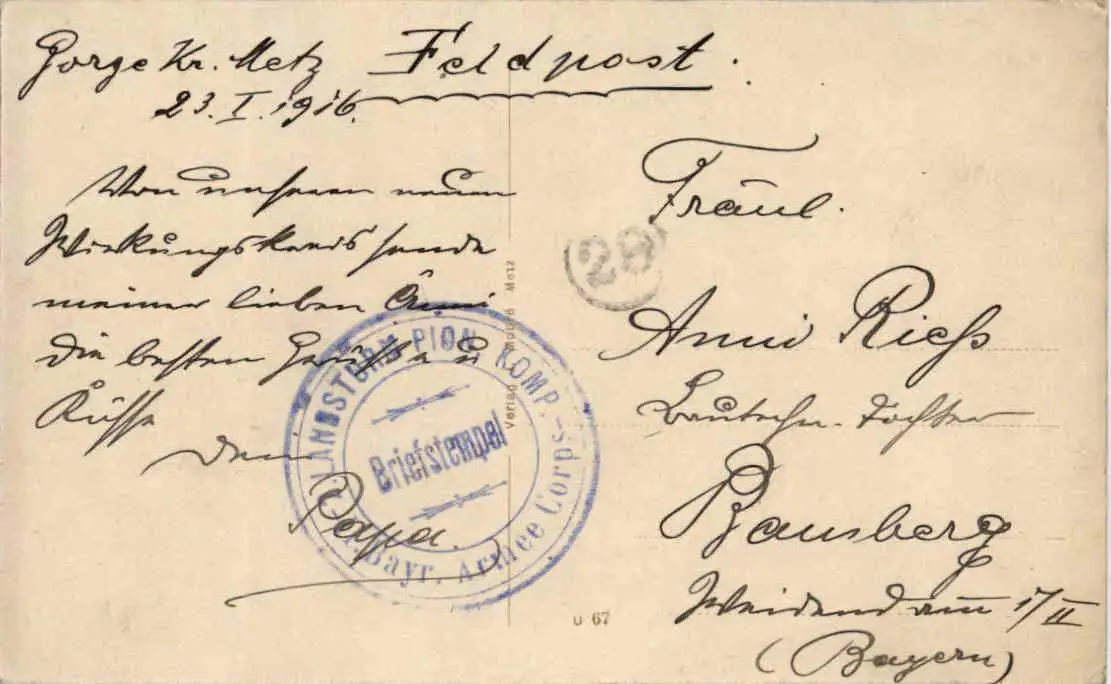 Gorze Kr. Metz Feldpost.
23. I. 1916.
Von unserem neuen
Wirkungskreis sende
meiner lieben Anni
die besten Grüsse u
Küsse
Dein
Papa.
Fräul.
Anni Rieß
Bautechn. Tochter
Bamberg
Weidendamm 17/II
(Bayern)
28
LANDSTURM-PION. KOMP.-
Briefstempel
Bayr. Armee Corps
Verlag Metz
U 67